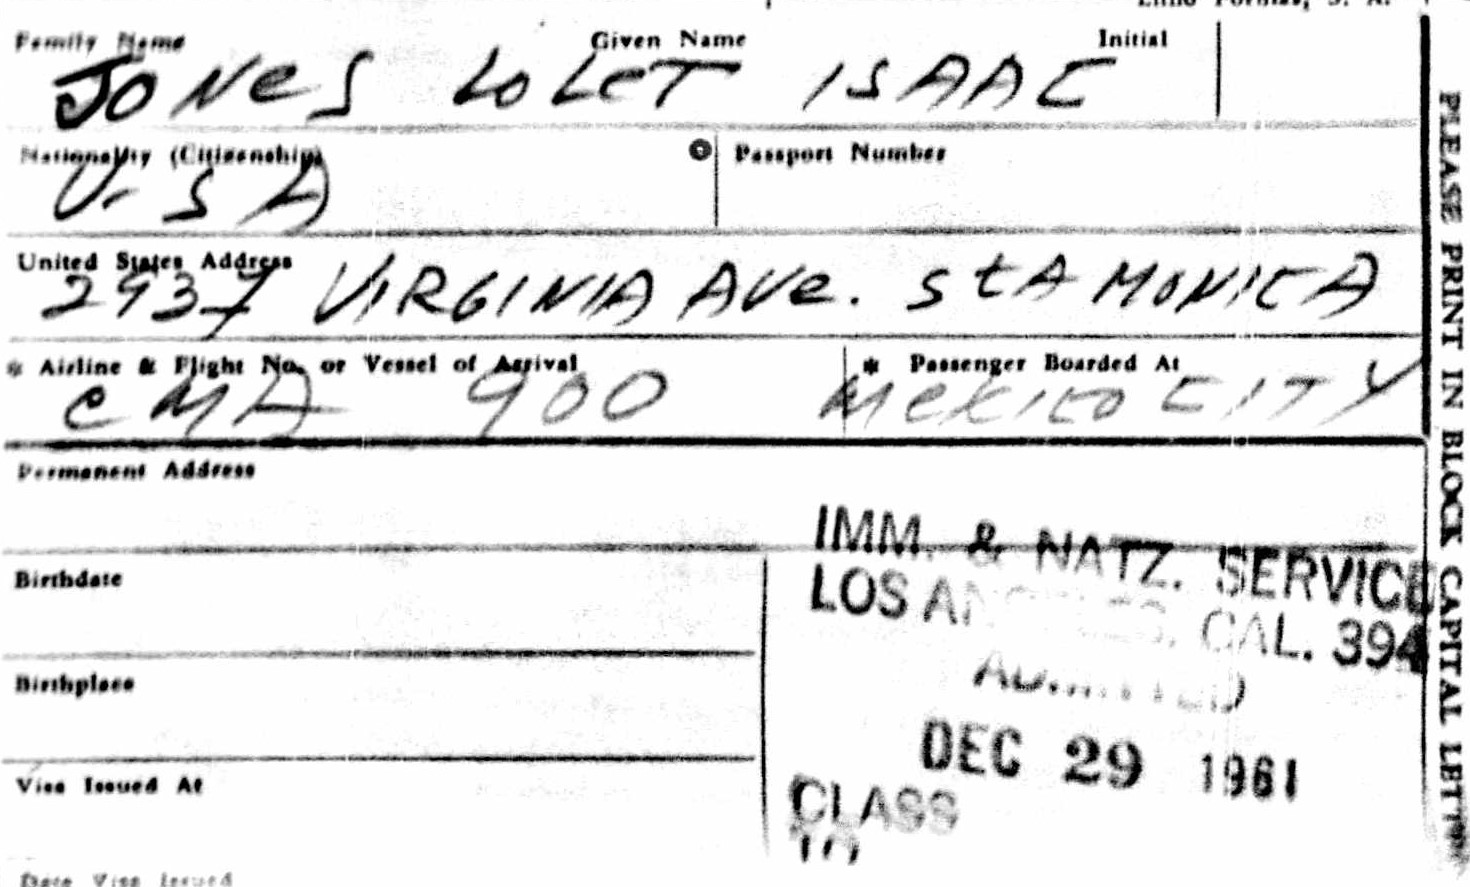 Litho Formas, S. A.
Family Name Given Name Initial
JONES LOLET ISAAC
Nationality (Citizenship) Passport Number
U.S A
United States Address
2937 VIRGINIA AVe. StA MONICA
* Airline & Flight No. or Vessel of Arrival * Passenger Boarded At
CMA 900 MeXICO CITY
Permanent Address
IMM. & NATZ. SERVICE
Birthdate
LOS ANGELES, CAL. 394
ADMITTED
Birthplace
DEC 29 1961
Visa Issued At
CLASS
TO
Date Visa Issued
PLEASE PRINT IN BLOCK CAPITAL LETTERS